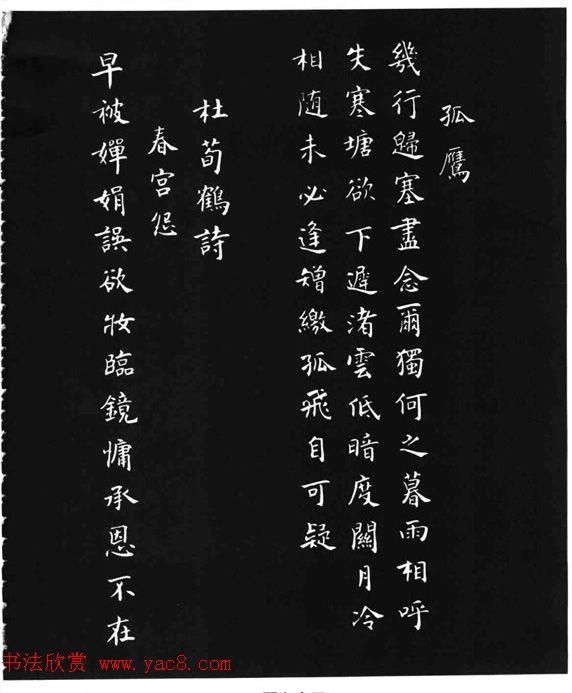 孤鷹
幾行歸塞盡念爾獨何之暮雨相呼
失寒塘欲下遲渚雲低暗度關月冷
相随未必逢矰繳孤飛自可疑
杜荀鶴詩
春宫怨
早被嬋娟誤欲妝臨鏡慵承恩不在
书法欣赏 www.yac8.com